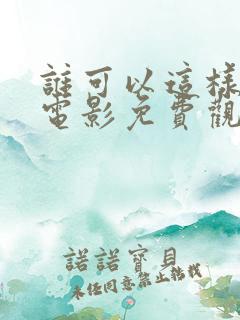 誰可以這樣
電影免費觀
諾諾寶貝
未任同意禁止轉載